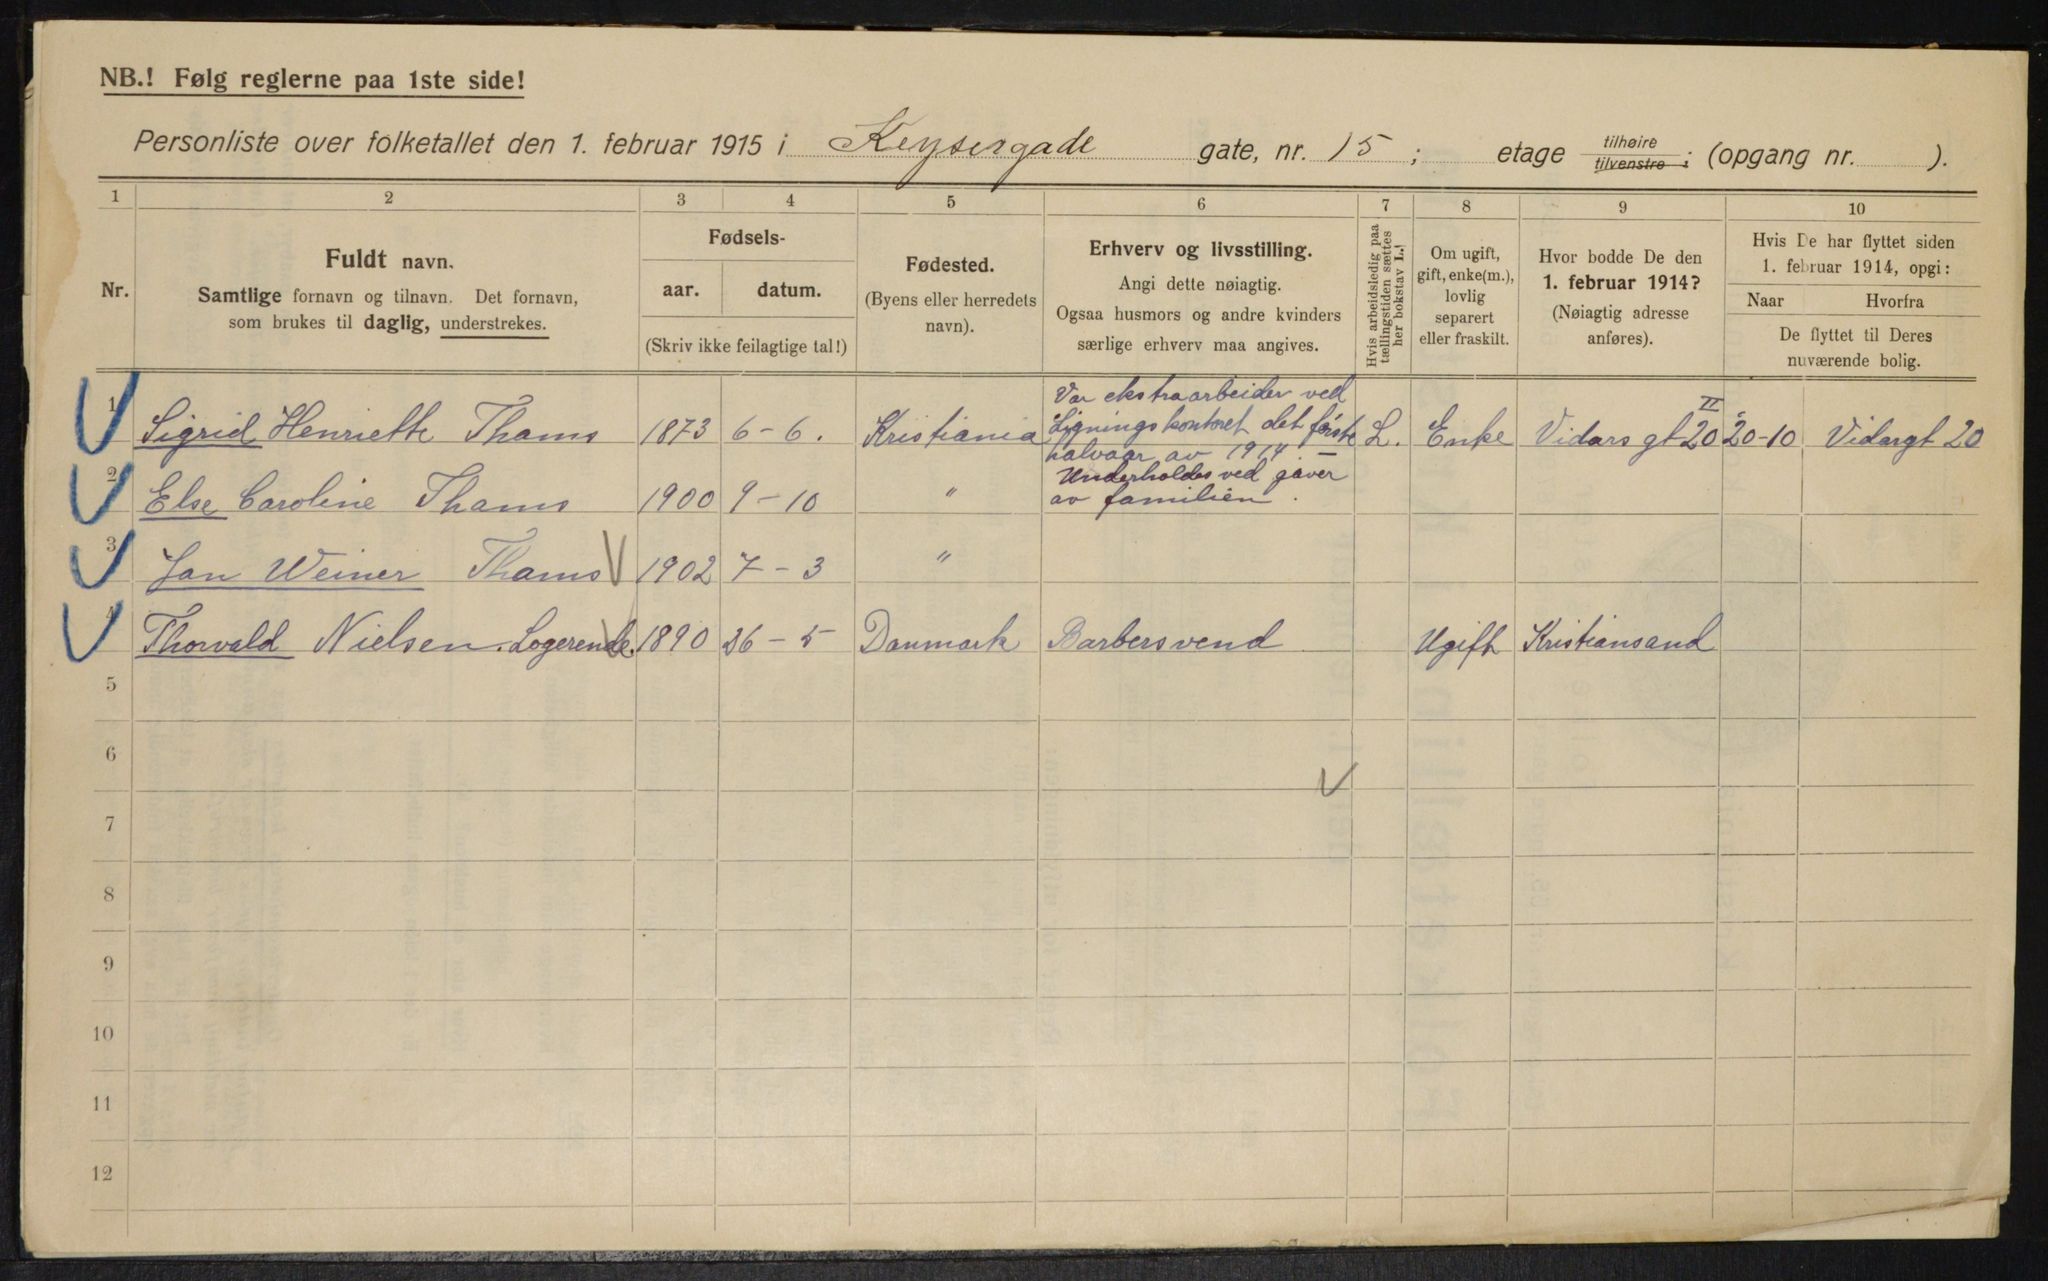 NB.! Følg reglerne paa 1ste side!
Personliste over folketallet den 1. februar 1915 i Keysergade gate, nr. 15 ; etage tilhøire tilvenstre ; (opgang nr. ).
1 2 3 4 5 6 7 8 9 10
Nr.
Fuldt navn.
Samtlige fornavn og tilnavn. Det fornavn,
som brukes til daglig, understrekes.
Fødsels-
aar. datum.
(Skriv ikke feilagtige tal!)
Fødested.
(Byens eller herredets
navn).
Erhverv og livsstilling.
Angi dette nøiagtig.
Ogsaa husmors og andre kvinders
særlige erhverv maa angives.
Hvis arbeidsledig paa
tællingstiden sættes
her bokstav L.!
Om ugift,
gift, enke(m.),
lovlig
separert
eller fraskilt.
Hvor bodde De den
1. februar 1914?
(Nøiagtig adresse
anføres).
Hvis De har flyttet siden
1. februar 1914, opgi:
Naar Hvorfra
De flyttet til Deres
nuværende bolig.
1 Sigrid Henriette Thams 1873 6-6. Kristiania Var ekstraarbeider ved
Ligningskontoret det første
halvaar av 1914 – L. Enke Vidars gt 20 II 20-10 Vidargt 20
2 Else Caroline Thams 1900 9-10 " Underholdes ved gaver
av familien.
3 Jan Weiner Thams 1902 7-3 "
4 Thorvald Nielsen. Logerende. 1890 26-5 Danmark Barbersvend Ugift Kristiansand
5
6
7
8
9
10
11
12